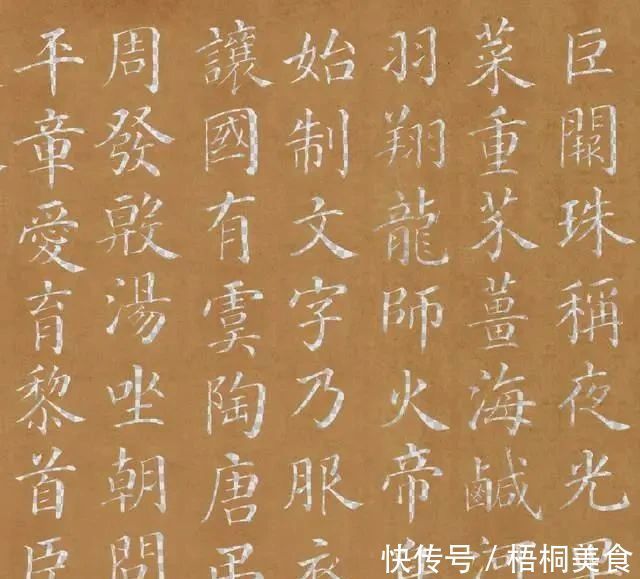 巨闕珠稱夜光
菜重芥薑海鹹河
羽翔龍師火帝
始制文字乃服衣
讓國有虞陶唐
周發殷湯坐朝問
平章愛育黎首臣
快传号 / 梧桐美食